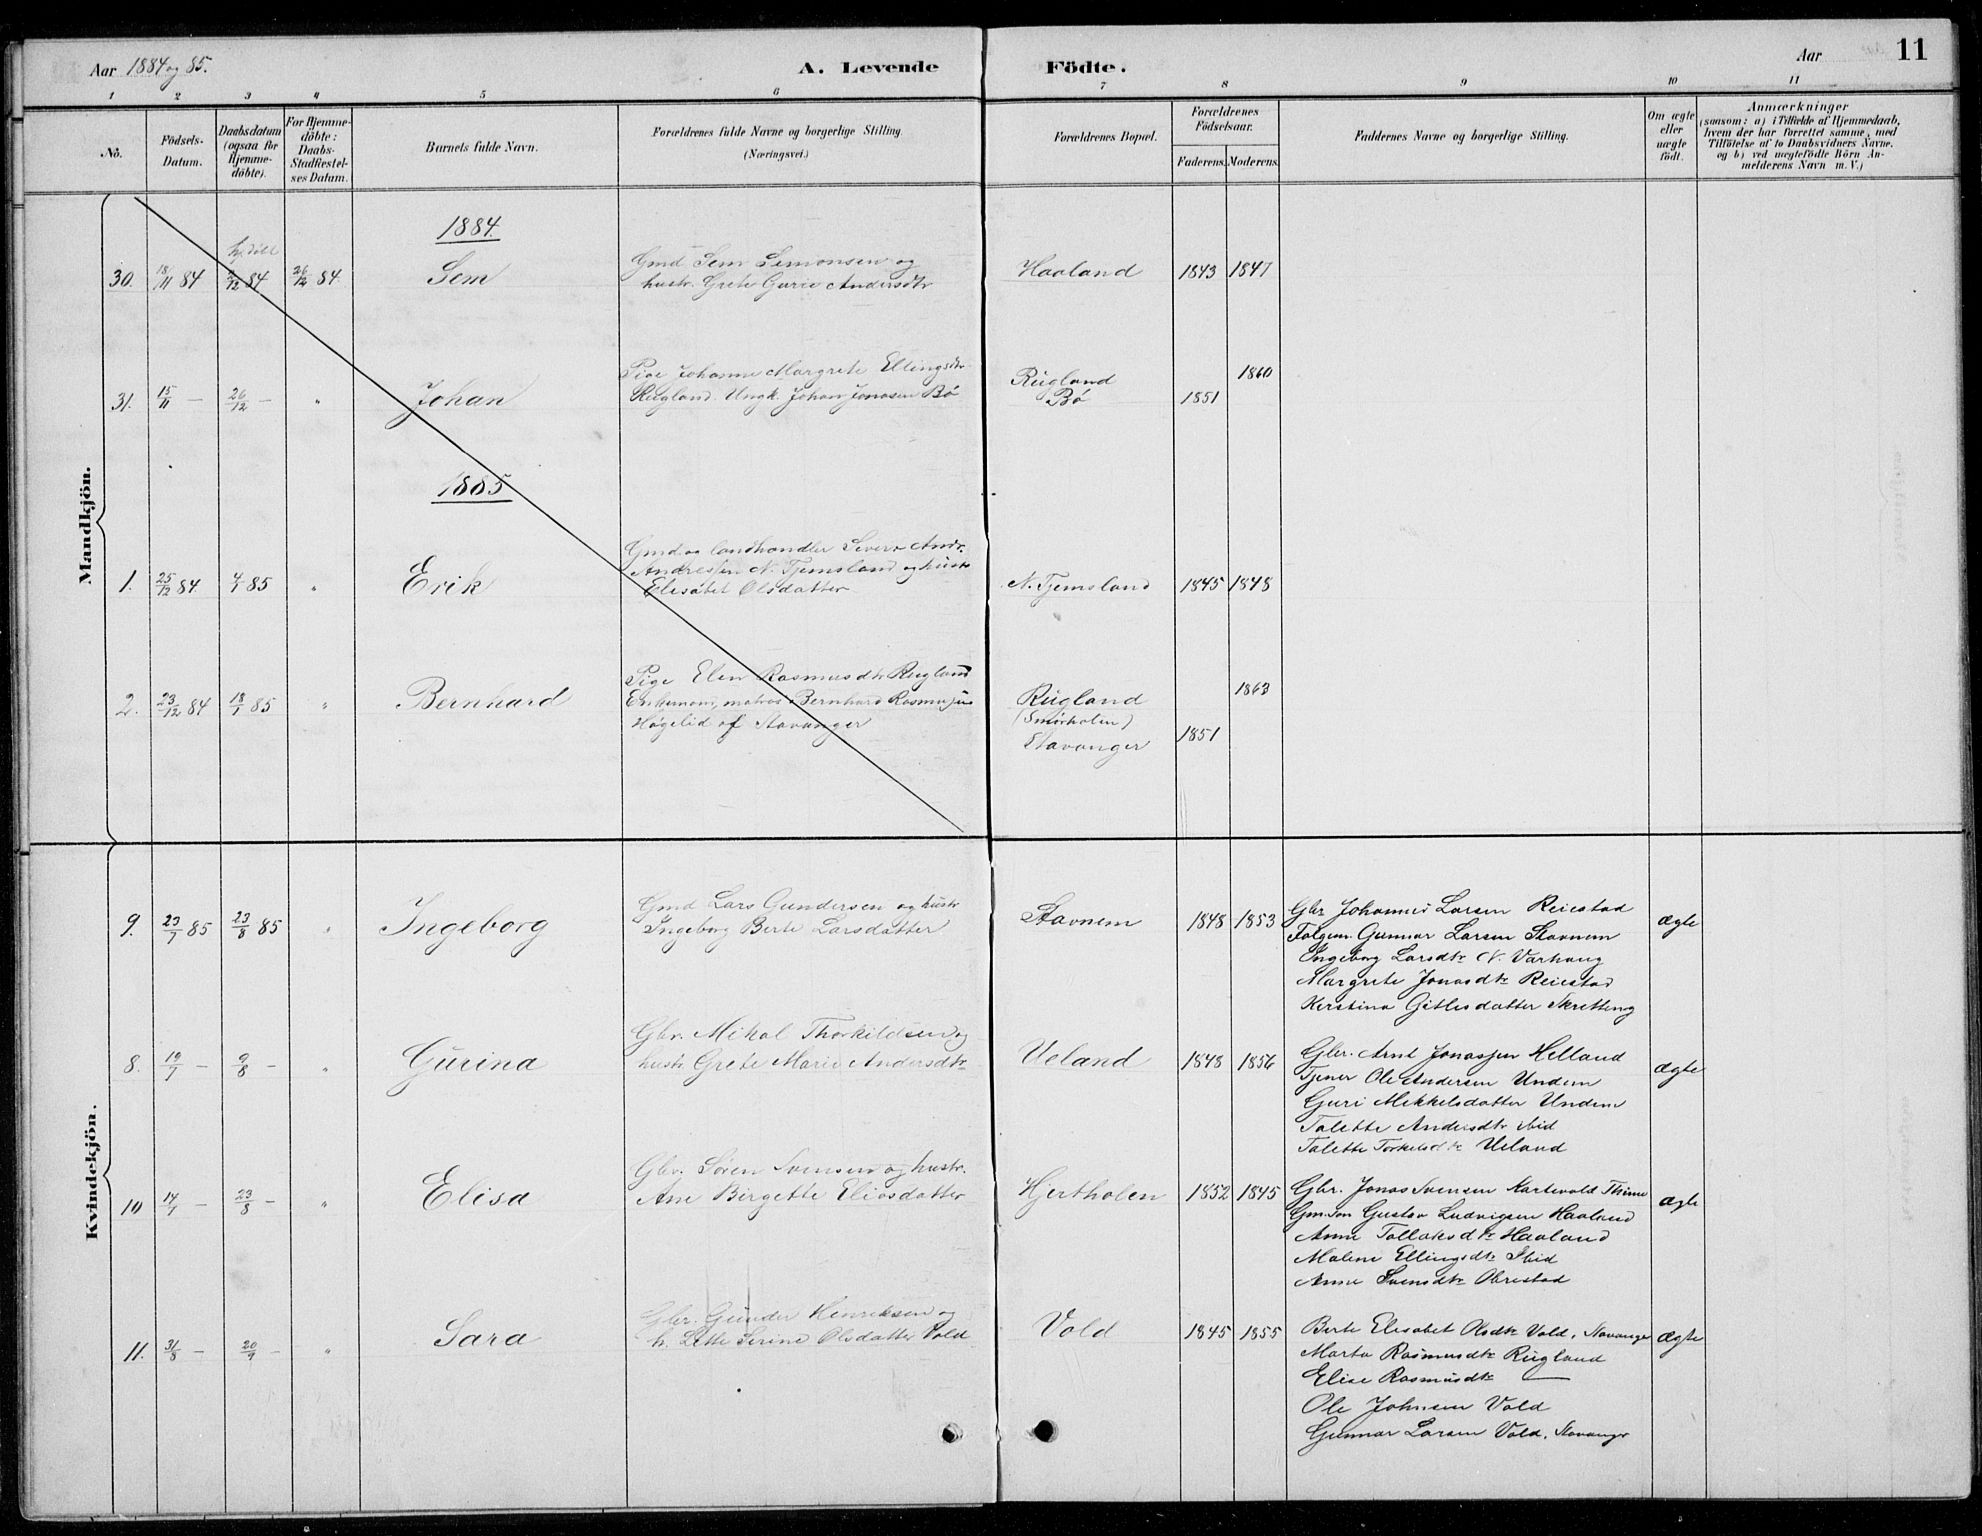 Aar 1884 og 85.
A. Levende Födte.
Aar
11
1 2 3 4 5 6 7 8 9 10 11
No.
Födsels-Datum.
Daabsdatum (ogsaa for Hjemme-döbte).
For Hjemme-döbte: Daabs-Stadfæstel-ses Datum.
Barnets fulde Navn.
Forældrenes fulde Navne og borgerlige Stilling
(Næringsvei.)
Forældrenes Bopæl.
Forældrenes Födselsaar.
Faderens. Moderens.
Faddernes Navne og borgerlige Stilling.
Om ægte eller uægte födt.
Anmærkninger
(saasom: a) i Tilfælde af Hjemmedaab,
hvem der har forrettet samme, med
Tilföielse af to Daabsvidners Navne.
og b) ved uægtefödte Börn An-
melderens Navn m. V.)
Mandkjön.
1884.
hj. döbt
30. 18/11 84 2/12 84 26/12 84. Sem
Gmd Sem Semonsen og
hustr. Grete Gurie Andersdtr
Haaland 1843 1847
31. 15/11 — 26/12 — " Johan
Pige Johanne Margrete Ellingsdtr
Rugland. Ungk. Johan Jonasen Bö
Rugland 1860
Bö 1851
1885
1. 25/12 84. 4/1 85 " Erik
Gmd og landhandler Sivert Andr.
Andressen N. Tjemsland og hustr
Elisabet Olsdatter
N. Tjemsland 1845 1848
2. 23/12 84 18/1 85 " Bernhard
Pige Elen Rasmusdtr Rugland
Enkemand, matros Bernhard Rasmussen
Høgelid af Stavanger
Rugland 1863
(Smørholen)
Stavanger 1851
Kvindekjön.
9. 23/7 85 23/8 85 " Ingeborg
Gmd Lars Gundersen og hustr
Ingeborg Berte Larsdatter
Stavnem 1848 1853
Gbr Johannes Larsen Reiestad
Folgem. Gunnar Larsen Stavnem
Ingeborg Larsdtr N. Varhaug
Margrete Jonasdtr Reiestad
Kerstina Gitlesdatter Skretting
ægte
8. 19/7 — 9/8 — " Gurina
Gbr. Mikal Thorkildsen og
hustr Grete Marie Andersdtr
Ueland 1848 1856
Gbr. Arnt Jonassen Helland
Tjener Ole Andersen Undem
Guri Mikkelsdatter Undem
Talette Andersdtr ibid
Talette Torkelsdtr Ueland
ægte
10 14/7 — 23/8 — " Elisa
Gbr. Sören Svensen og hustr.
Ane Birgette Eliasdatter
Hjertholen 1852 1845
Gbr. Jonas Svensen Kartevold Thime
Gm. søn Gustav Ludvigsen Haaland
Anne Tollaksdtr Haaland
Malene Ellingsdtr Ibid
Anne Svensdtr Obrestad
ægte
11. 31/8 — 20/9 — " Sara
Gbr. Gunder Henriksen og
h. Lette Serine Olsdatter Vold
Vold 1845 1855
Berte Elisabet Olsdtr Vold, Stavanger
Marta Rasmusdtr Rugland
Elise Rasmusdtr —
Ole Johnsen Vold
Gunnar Larsen Vold, Stavanger
ægte